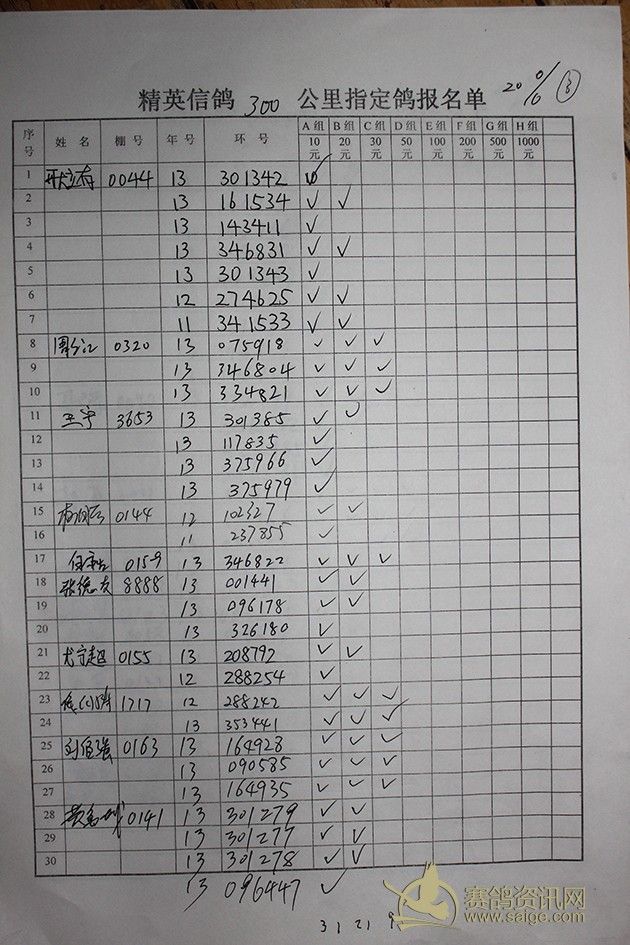 精英信鸽 300 公里指定鸽报名单 20%
序号 姓名 棚号 年号 环号 A组 10元 B组 20元 C组 30元 D组 50元 E组 100元 F组 200元 G组 500元 H组 1000元
1 0044 13 301342 ✓
2 13 161534 ✓ ✓
3 13 143411 ✓
4 13 346831 ✓ ✓
5 13 301343 ✓
6 12 274625 ✓ ✓
7 11 341533 ✓ ✓
8 0320 13 075918 ✓ ✓ ✓
9 13 346804 ✓ ✓ ✓
10 13 334821 ✓ ✓ ✓
11 王宇 3653 13 301385 ✓ ✓
12 13 117835 ✓
13 13 375966 ✓
14 13 375979 ✓
15 0144 12 102327 ✓ ✓
16 11 237855 ✓
17 0159 13 346822 ✓ ✓ ✓
18 8888 13 001441 ✓ ✓
19 13 096178 ✓ ✓
20 13 326180 ✓
21 0155 13 208792 ✓ ✓
22 12 288254 ✓
23 1717 12 288242 ✓ ✓ ✓
24 13 353441 ✓ ✓ ✓
25 刘伯强 0163 13 164928 ✓ ✓ ✓
26 13 090585 ✓ ✓ ✓
27 13 164935 ✓ ✓ ✓
28 0141 13 301279 ✓ ✓
29 13 301277 ✓ ✓
30 13 301278 ✓ ✓
13 096447 ✓
31 21 9
赛鸽资讯网
www.saige.com